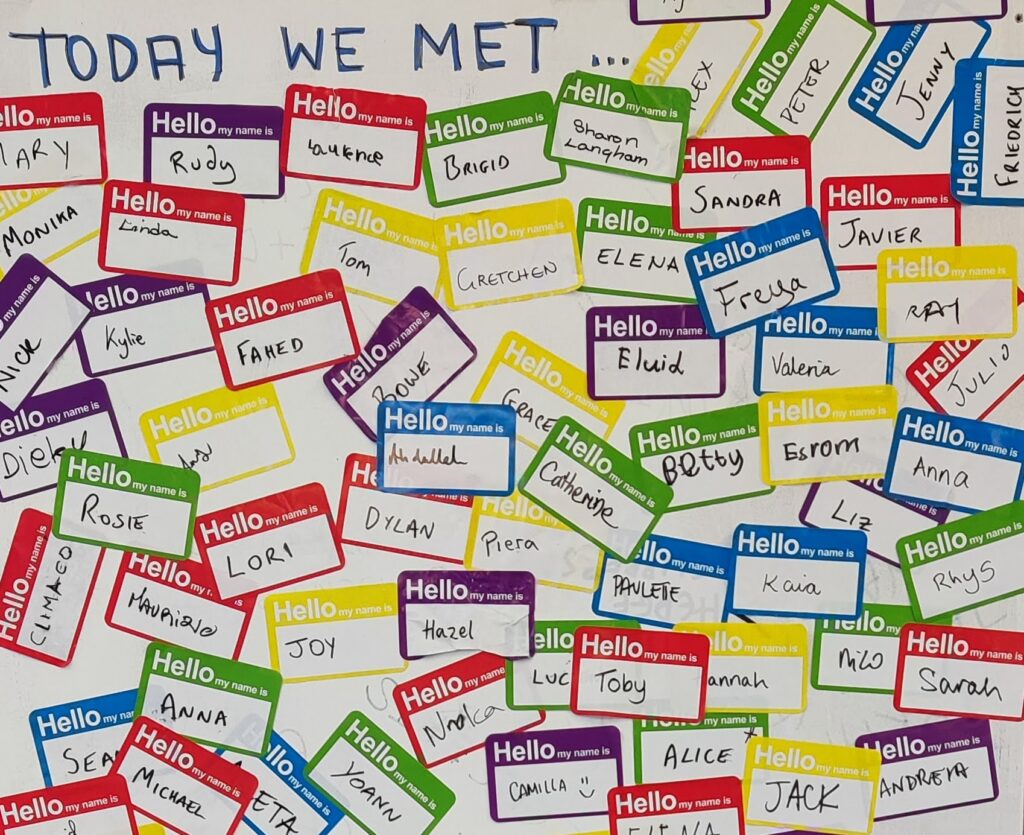 TODAY WE MET ...
Hello my name is
PETER
Hello my name is
JENNY
Hello
FRIEDRICH
Hello my name is
Hello my name is
Rudy
Hello my name is
Laurence
Hello my name is
BRIGID
Hello my name is
Sharon
Langham
Hello my name is
SANDRA
Hello my name is
JAVIER
my name is
MONIKA
Hello my name is
Linda
Hello my name is
Tom
Hello my name is
GRETCHEN
Hello my name is
ELENA
Hello my name is
Freya
Hello my name is
RAY
my name is
NICK
Hello my name is
Kylie
Hello my name is
FAHED
Hello my name is
BOWE
Hello my name is
GRACE
Hello my name is
Eluid
Hello my name is
Valeria
Hello my name is
JULIO
Hello my name is
Hello my name is
Hello my name is
Abdallah
Hello my name is
Catherine
Hello my name is
Betty
Hello my name is
Esrom
Hello my name is
Anna
Hello my name is
ROSIE
Hello my name is
LORI
Hello
DYLAN
Hello
Piera
LIZ
Hello my name is
Rhys
Hello my name is
CLIMACO
Hello my name is
MAURIZIO
Hello my name is
JOY
Hello my name is
Hazel
Hello my name is
PAULETTE
Hello my name is
Kaia
Hello my name is
ANNA
Hello my name is
Hello
Hello my name is
Toby
my name is
Hello
Milo
Hello my name is
Sarah
Hello
Hello my name is
MICHAEL
Hello my name is
YOANN
Hello my name is
CAMILLA
Hello my name is
ALICE
Hello my name is
JACK
Hello my name is
Hello my name is
Hello my name is